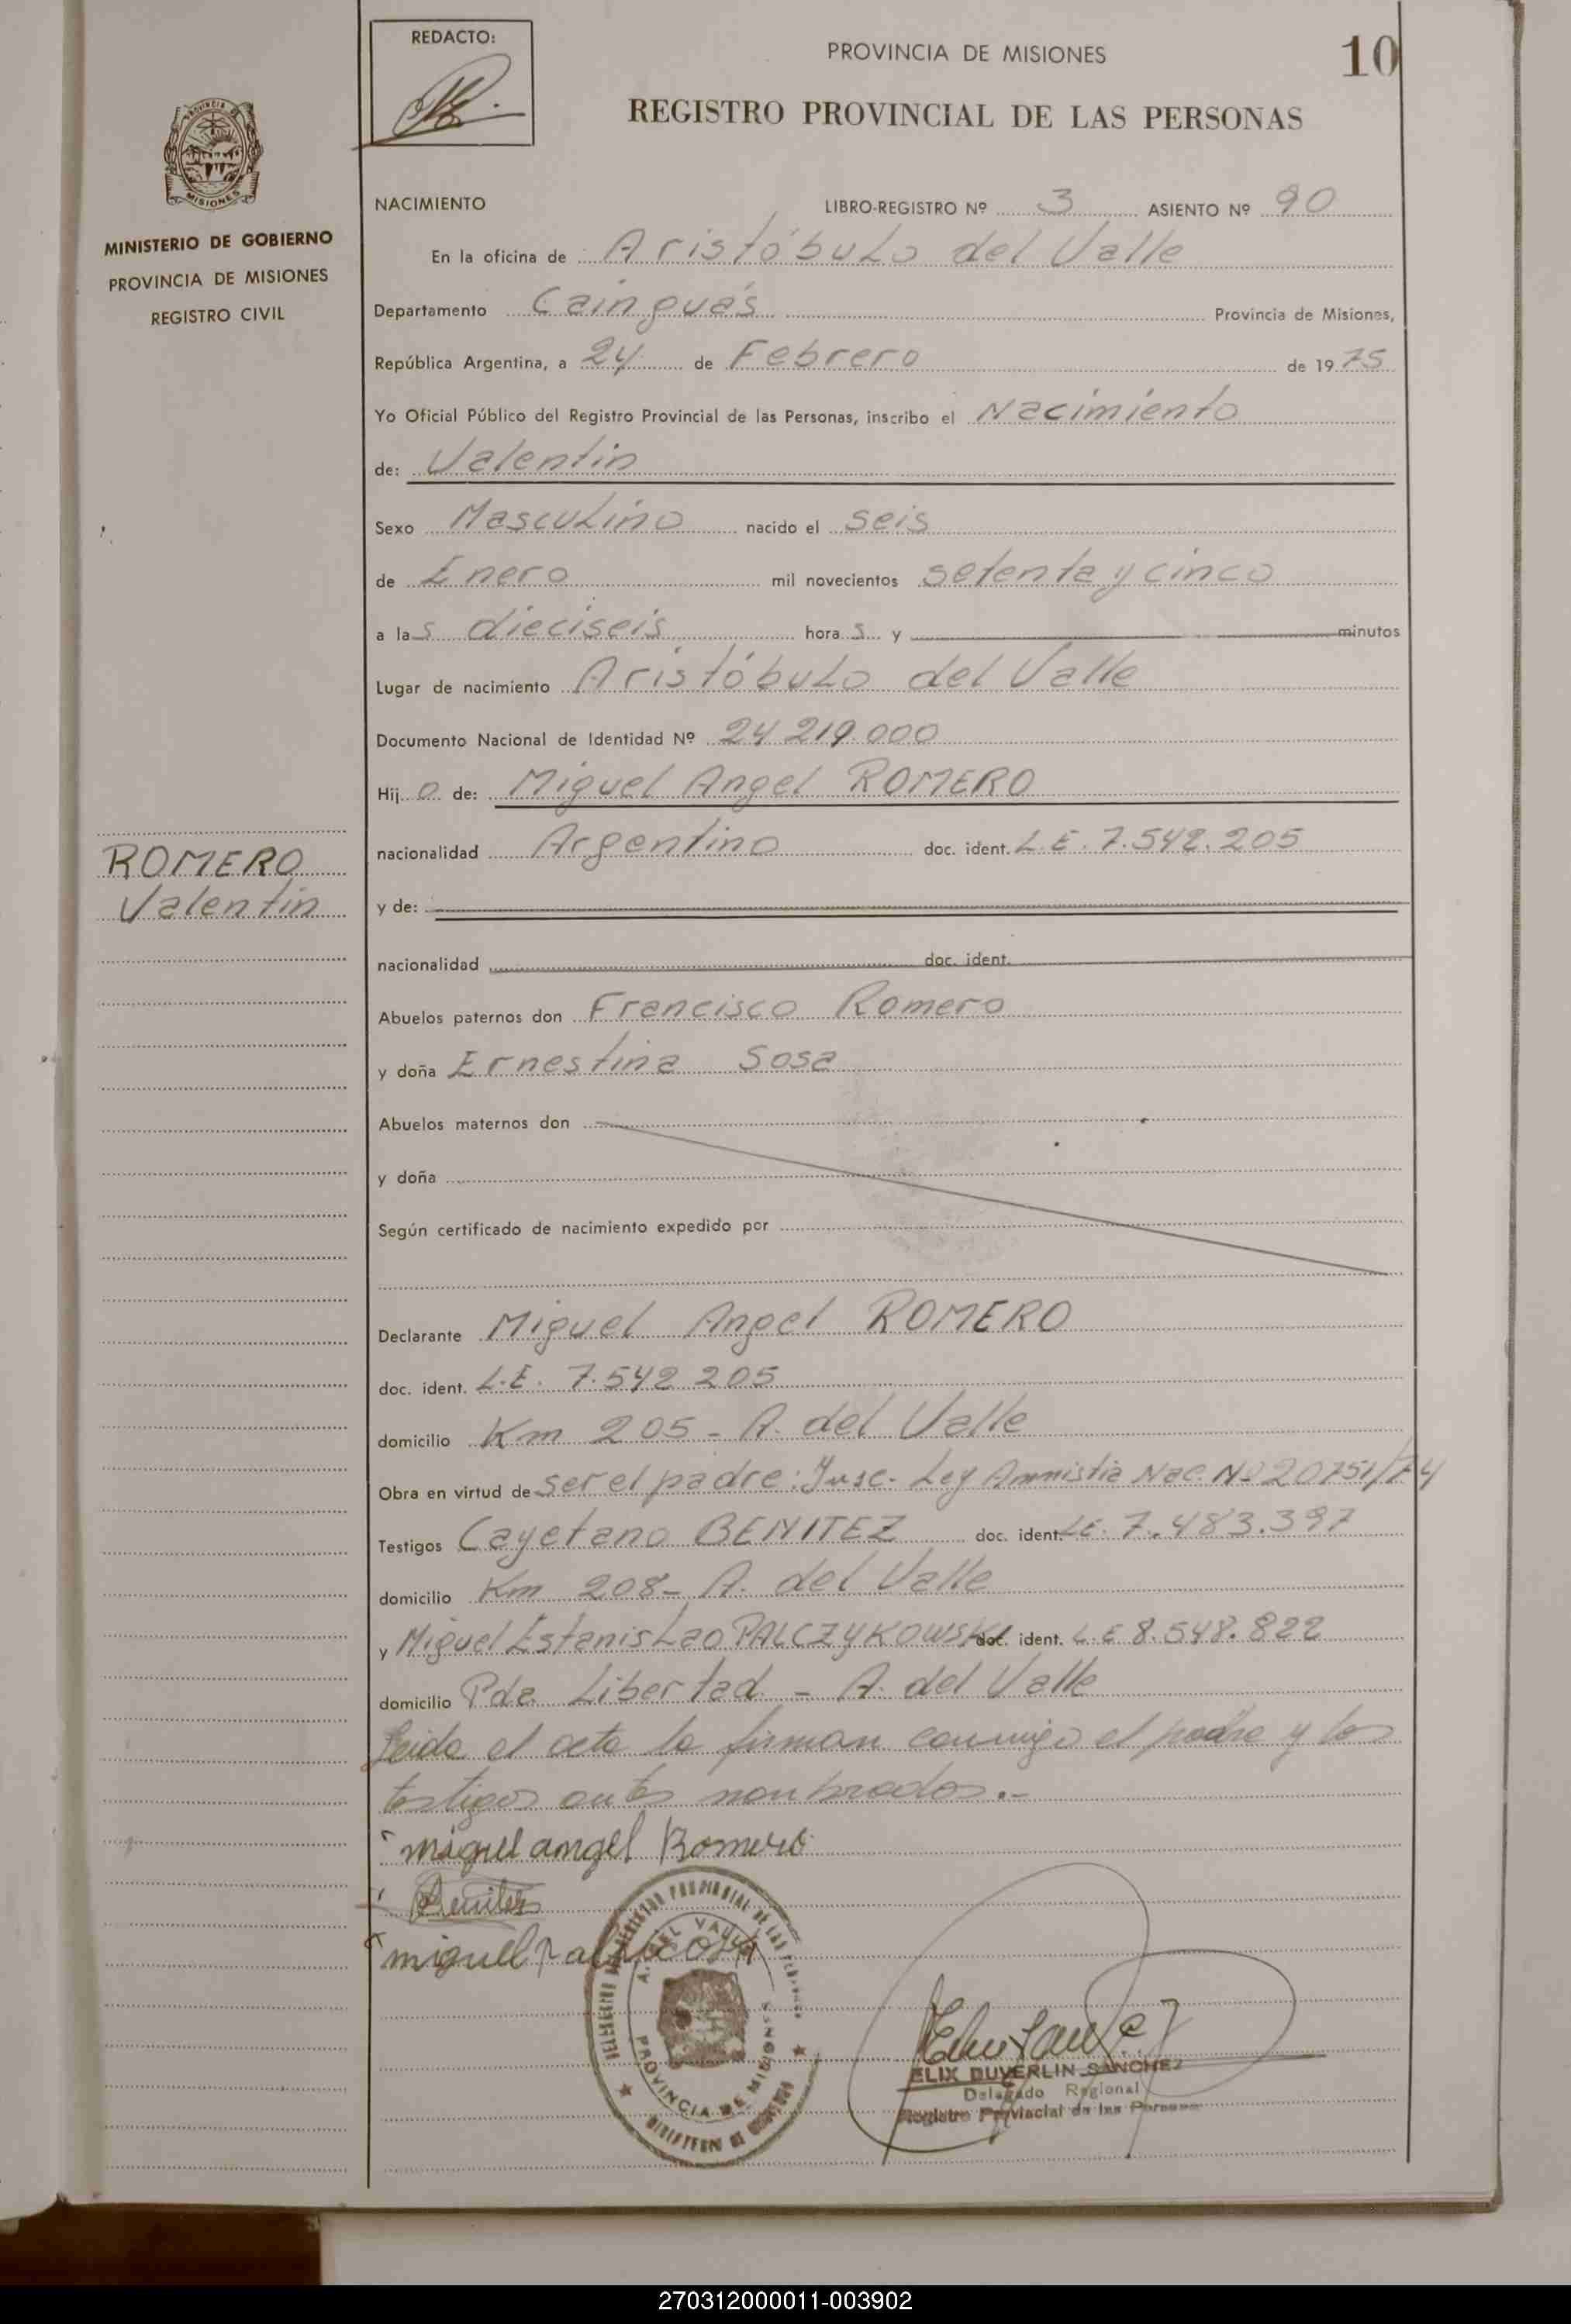 REDACTO:
PROVINCIA DE MISIONES
10
REGISTRO PROVINCIAL DE LAS PERSONAS
PROVINCIA DE
MISIONES
MINISTERIO DE GOBIERNO
PROVINCIA DE MISIONES
REGISTRO CIVIL
NACIMIENTO LIBRO-REGISTRO Nº 3 ASIENTO Nº 90
En la oficina de Aristóbulo del Valle
Departamento Cainguás Provincia de Misiones,
República Argentina, a 24 de Febrero de 1975
Yo Oficial Público del Registro Provincial de las Personas, inscribo el Nacimiento
de: Valentin
Sexo Masculino nacido el seis
de Enero mil novecientos setenta y cinco
a las dieciseis horas y minutos
Lugar de nacimiento Aristóbulo del Valle
Documento Nacional de Identidad Nº 24 219.000
Hijo de: Miguel Angel ROMERO
nacionalidad Argentino doc. ident. L.E. 7.542.205
ROMERO
Valentin
y de:
nacionalidad doc. ident.
Abuelos paternos don Francisco Romero
y doña Ernestina Sosa
Abuelos maternos don
y doña
Según certificado de nacimiento expedido por
Declarante Miguel Angel ROMERO
doc. ident. L.E. 7.542 205
domicilio Km 205 - A. del Valle
Obra en virtud de ser el padre: Insc. Ley Amnistia Nac. Nº 20751/74
Testigos Cayetano BENITEZ doc. ident. L.E. 7.483.397
domicilio Km 208- A. del Valle
y Miguel Estanislao PALCZYKOWSKI doc. ident. L E 8.548.822
domicilio Pda. Libertad - A. del Valle
Leida el acta la firman conmigo el padre y los
testigos antes nombrados.-
miguel angel Romero
Benitez
miguel
A. DEL VALLE
PROVINCIA DE MISIONES
ELIX DUVERLIN SANCHEZ
Delegado Regional
Registro Provincial de las Personas
270312000011-003902